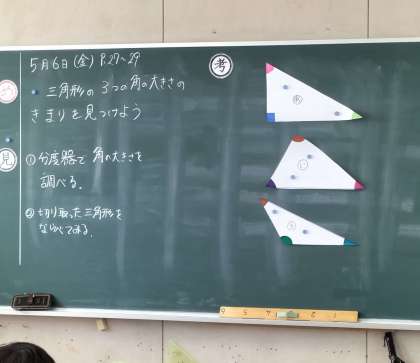 5月6日(金) P.27~29
め
三角形の3つの角の大きさの
きまりを見つけよう
見
①分度器で角の大きさを
調べる。
②切り取った三角形を
ならべてみる。
考
あ
い
う